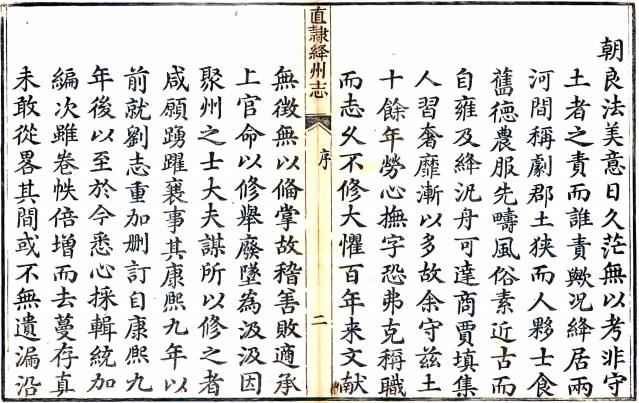 朝良法美意日久茫無以考非守
土者之責而誰責歟况絳居兩
河間稱劇郡土狭而人夥士食
舊德農服先疇風俗素近古而
自雍及絳汎舟可達商賈填集
人習奢靡漸以多故余守兹土
十餘年勞心撫字恐弗克稱職
而志久不修大懼百年来文献
直隷絳州志
序
二
無徴無以偹掌故稽善敗適承
上官命以修舉廢墜為汲汲因
聚州之士大夫謀所以修之者
咸願踴躍襄事其康熙九年以
前就劉志重加删訂自康熙九
年後以至於今悉心採輯統加
編次雖卷帙倍增而去蔓存真
未敢從畧其間或不無遺漏沿